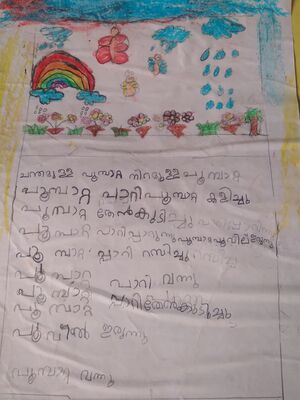 ചന്തമുള്ള പൂമ്പാറ്റ നിറമുള്ള പൂമ്പാറ്റ
പൂമ്പാറ്റ പാറി പൂമ്പാറ്റ കളിച്ചു
പൂമ്പാറ്റ തേൻകുടിച്ചു
പൂമ്പാറ്റ പാറിപ്പാറുന്നു
പൂമ്പാറ്റ പാറി രസിച്ചു
പൂമ്പാറ്റ പാറി വന്നു
പൂമ്പാറ്റ പാറിതേൻകുടിച്ചു
പൂമ്പാറ്റ
പൂവിൽ ഇരുന്നു
പൂമ്പാറ്റ വന്നു